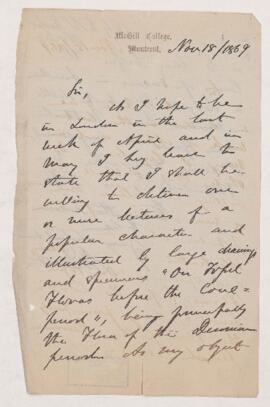 McGill College,
Montreal, Nov 18/1869
Sir,
As I hope to be
in London in the last
week of April and in
May I beg leave to
state that I shall be
willing to deliver one
or more lectures of a
popular character and
illustrated by large drawings
and specimens "On Fossil
Floras before the Coal=
period", being principally
the Flora of the Devonian
period. As my object